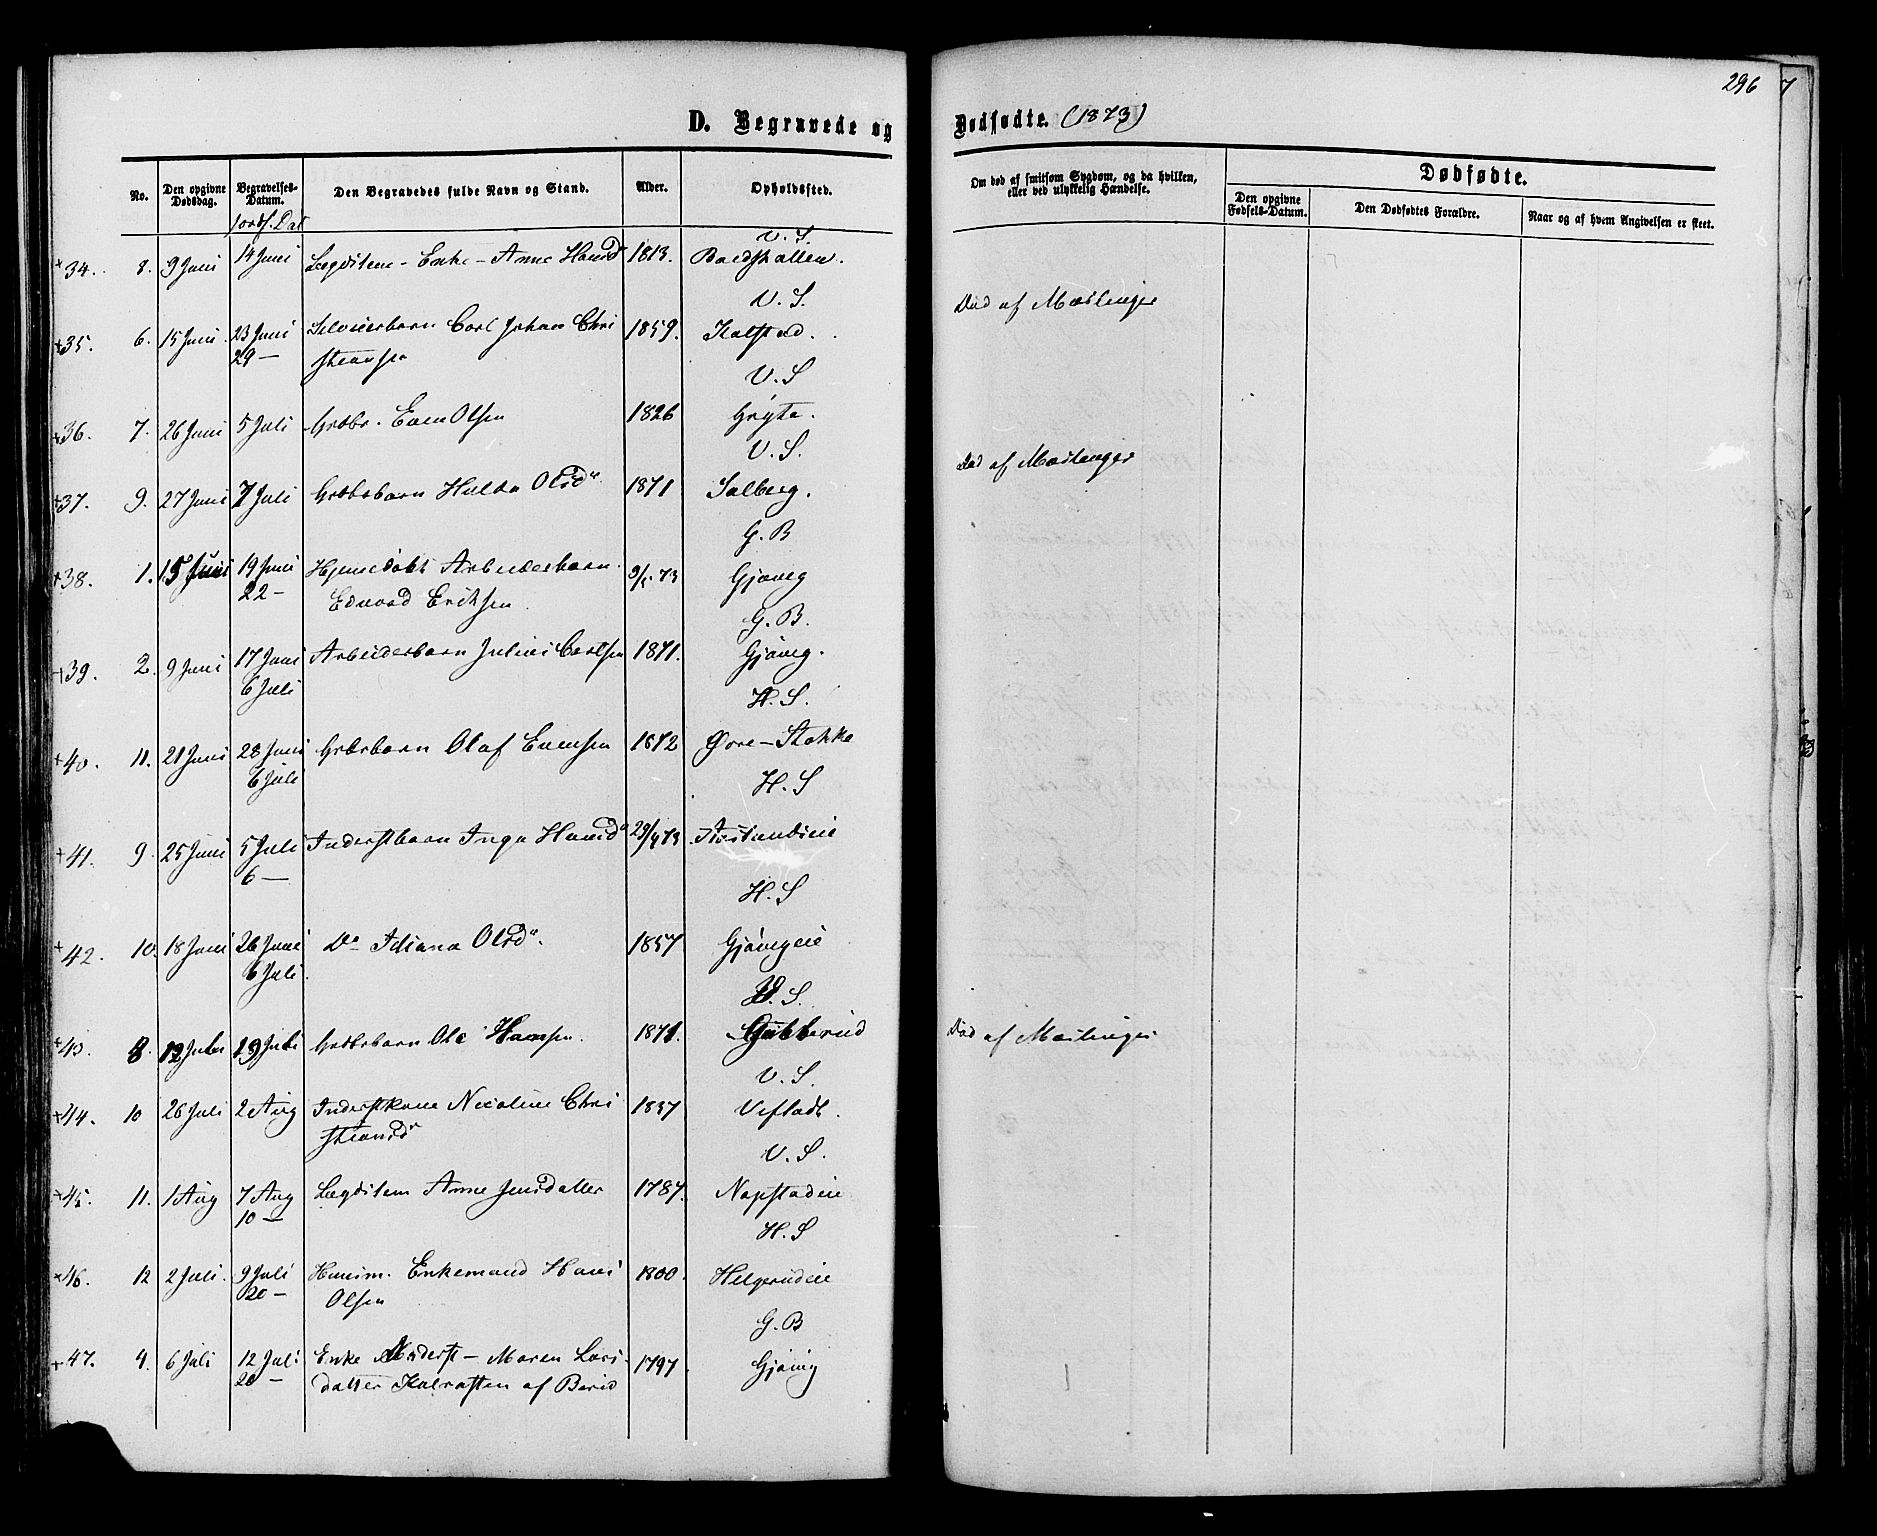 296 7
D. Begravede og
Dødfødte. (1873)
No.
Den opgivne Dødsdag.
Begravelses-Datum.
Jordf. Dat
Den Begravedes fulde Navn og Stand.
Alder.
Opholdssted.
Om død af smitsom Sygdom, og da hvilken,
eller ved ulykkelig Hændelse.
Dødfødte.
Den opgivne Fødsels-Datum.
Den Dødfødtes Forældre.
Naar og af hvem Angivelsen er skeet.
V. S.
34. 8. 9 Juni 14 Juni Lægdslem - Enke - Anne Hansd 1813.
V. S.
35. 6. 15 Juni 23 Juni Selveierbarn Carl Johan Chri 1859. Kalstad.
29 — stiansen
Død af Mæslinger
V. S
36. 7. 26 Juni 5 Juli Grdbr. Even Olsen 1826
V. S.
37. 9. 27 Juni 7 Juli Grdbrbarn Hulda Olsd 1871 Solberg.
Død af Mæslinger
G. B
38. 1. 15 Juni 19 Juni Hjemmedøbt Arbeiderbarn 73 Gjøvig
22 — Edvard Eriksen.
G. B.
39. 2. 9 Juni 17 Juni Arbeiderbarn Julius Carlsen 1871. Gjøvig.
6 Juli
H. S.
40. 11. 21 Juni 28 Juni Grdbrbarn Olaf Evensen 1872 Stokke
6 Juli
H. S
41. 9. 25 Juni 5 Juli Inderstbarn Inga Hansd
6 —
H. S
42. 10. 18 Juni 26 Juni Do Olsd. 1857 Gjøvigeie
6 Juli
V. S.
43. 8. 12 Juli 19 Juli Grdbrbarn Ole Hansen. 1871.
Død af Mæslinger
V. S.
44. 10 26 Juli 2 Aug Inderstkone Nicoline Chri 1837
stiansd
V. S.
45. 11. 1 Aug 7 Aug Lægdslem Anne Jensdatter 1787. Napstadeie
10 —
H. S
46. 12 2 Juli. 9 Juli Huusm. Enkemand Hans 1800. Helgerudeie
20 — Olsen
G. B
47. 4. 6 Juli 12 Juli Enke Inderst - Maren Lars 1797 Gjøvig
20 — datter af